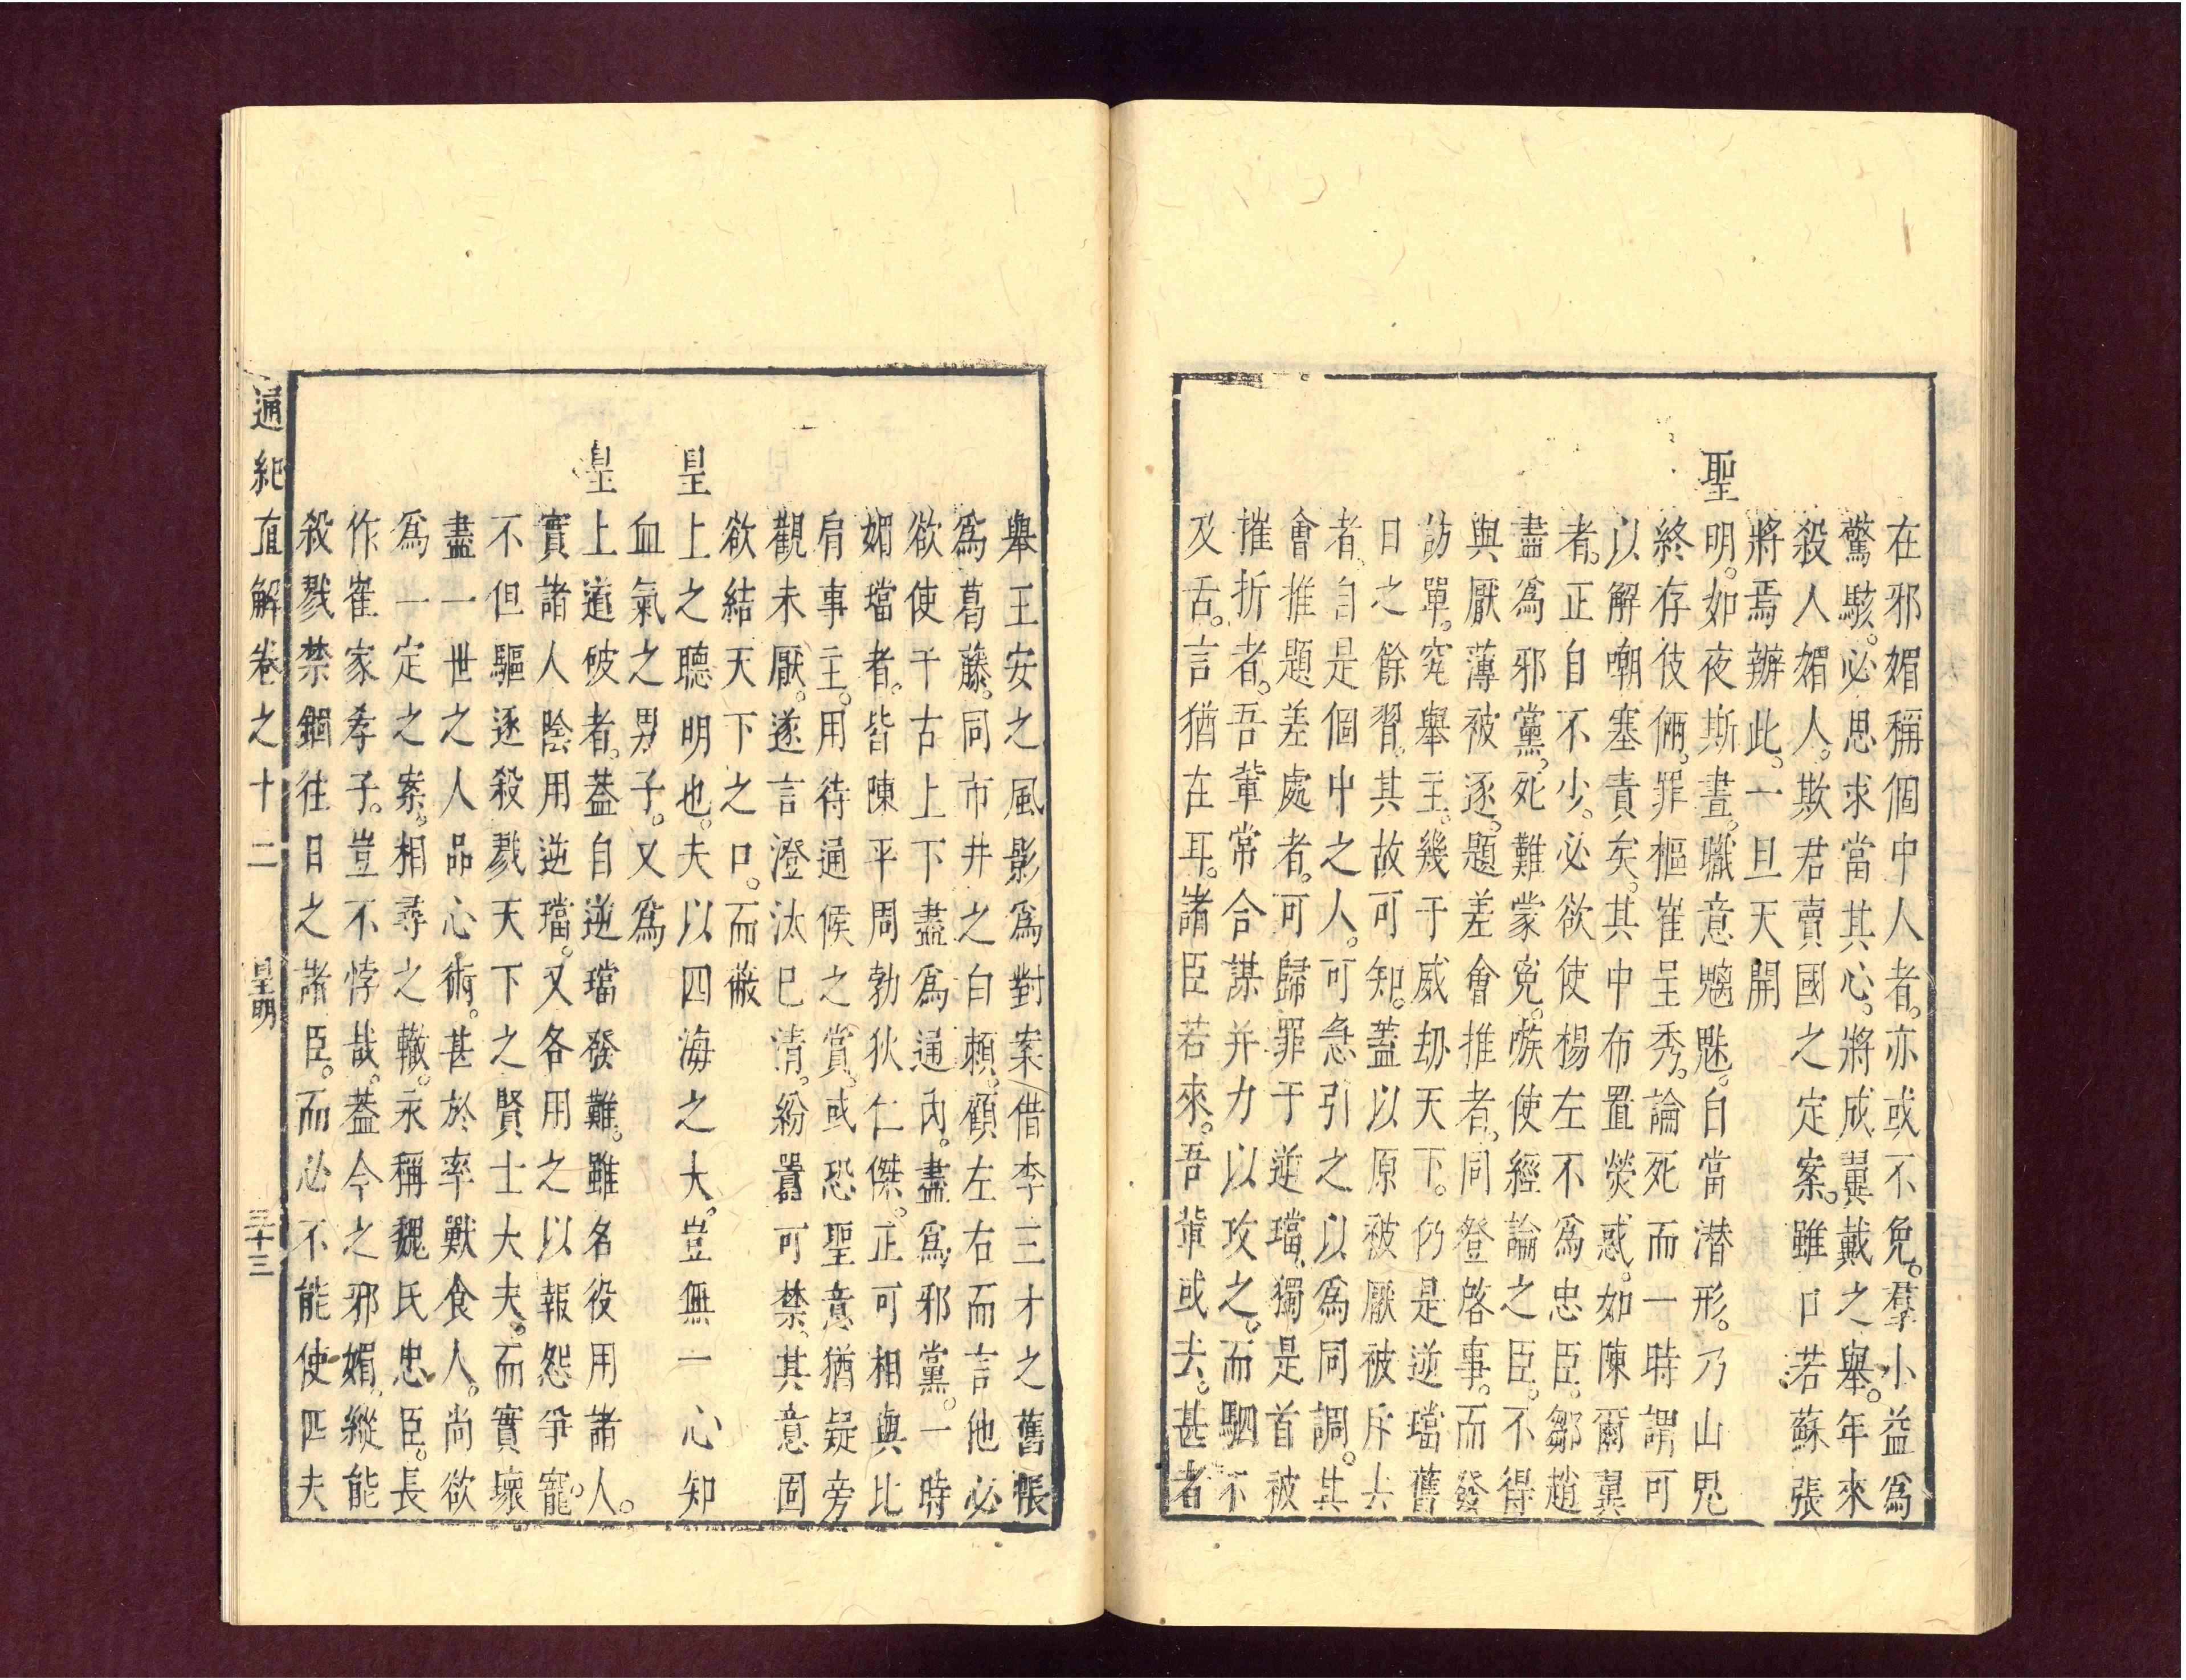 在邪媚稱個中人者。亦或不免。羣小益爲
驚駭。必思求當其心。將成翼戴之舉。年來
殺人媚人。欺君賣國之定案。雖口若蘇張
將焉辦此。一旦天開
聖明。如夜斯晝。職意魑魅。白當潜形。乃山鬼
終存伎倆。罪樞崔呈秀。論死而一時謂可
以解嘲塞責矣。其中布置熒惑。如陳爾翼
者。正自不少。必欲使楊左不爲忠臣。鄒趙
盡爲邪黨。死難蒙寃。嗾使經論之臣。不得
與厭薄被逐。題差會推者。同登啓事。而發
訪單。究舉主。幾于威劫天下。仍是逆璫舊
日之餘習。其故可知。蓋以原被厭被斥去
者。自是個中之人。可急引之以爲同調。其
會推題差處者。可歸罪于逆璫。獨是首被
摧折者。吾輩常合謀并力以攻之。而駟不
及舌。言猶在耳。諸臣若來。吾輩或去。甚者
舉王安之風影爲對案。借李三才之舊帳
爲葛藤。同市井之白賴。顧左右而言他。必
欲使千古上下盡爲通內。盡爲邪黨。一時
媚璫者。皆陳平周勃狄仁傑。正可相與比
肩事主。用待通候之賞。或恐聖意猶疑。旁
觀未厭。遂言澄汰已清。紛囂可禁。其意固
欲結天下之口。而蔽
皇上之聰明也。夫以四海之大。豈無一心知
血氣之男子。又爲
皇上道破者。葢自逆璫發難。雖名役用諸人。
實諸人陰用逆璫。又各用之以報怨爭寵。
不但驅逐殺戮天下之賢士大夫。而實壞
盡一世之人品心術。甚於率獸食人。尚欲
爲一定之案。相尋之轍。永稱魏氏忠臣。長
作崔家孝子。豈不悖哉。葢今之邪媚。縱能
殺戮禁錮往日之諸臣。而必不能使匹夫
通紀直解卷之十二 皇明 三十三